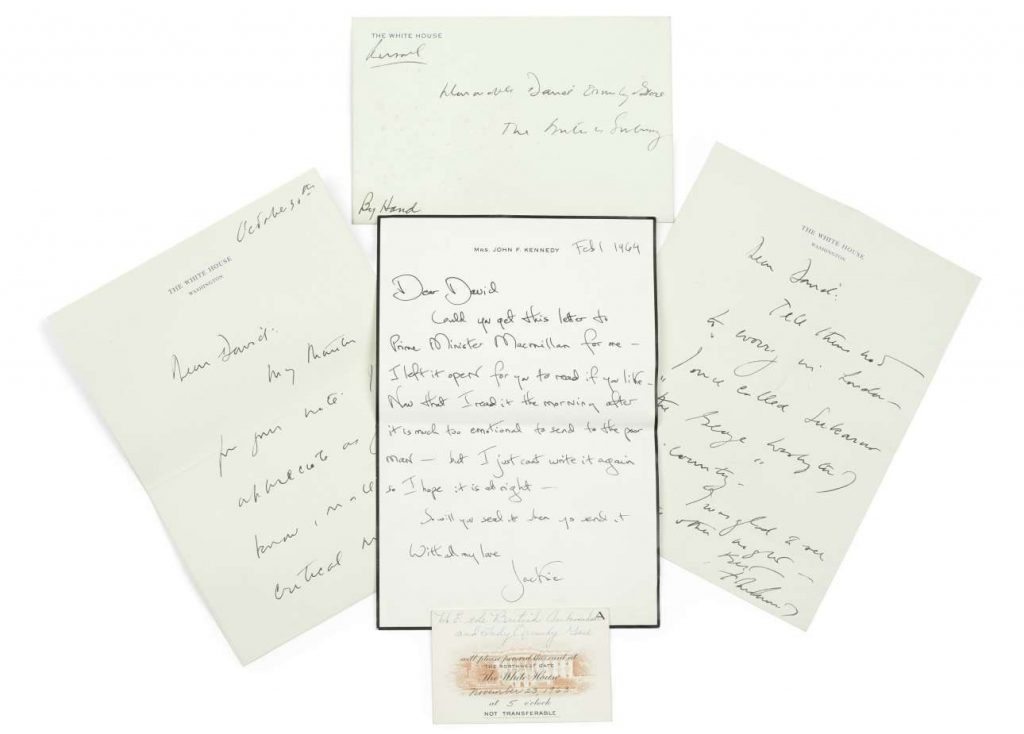 THE WHITE HOUSE
Personal
Honorable David Ormsby Gore
The British Embassy
By Hand
October 30th
THE WHITE HOUSE
WASHINGTON
Dear David:
My thanks
for your note.
appreciate as
know,
critical
MRS. JOHN F. KENNEDY
Feb 1 1964
Dear David
Could you get this letter to
Prime Minister Macmillan for me —
I left it open for you to read if you like —
Now that I read it the morning after
it is much too emotional to send to the poor
man — but I just cant write it again
so I hope it is alright —
So will you seal it when you send it
With all my love
Jackie
THE WHITE HOUSE
WASHINGTON
Dear David:
Tell them not
to worry in London —
I once called Sukarno
"the George Washington
of country"
I was glad to see
other night —
A
H.E. the British Ambassador
and Lady Ormsby Gore
will please present this card at
THE NORTHWEST GATE
The White House
November 23, 1963
at 5 o'clock
NOT TRANSFERABLE